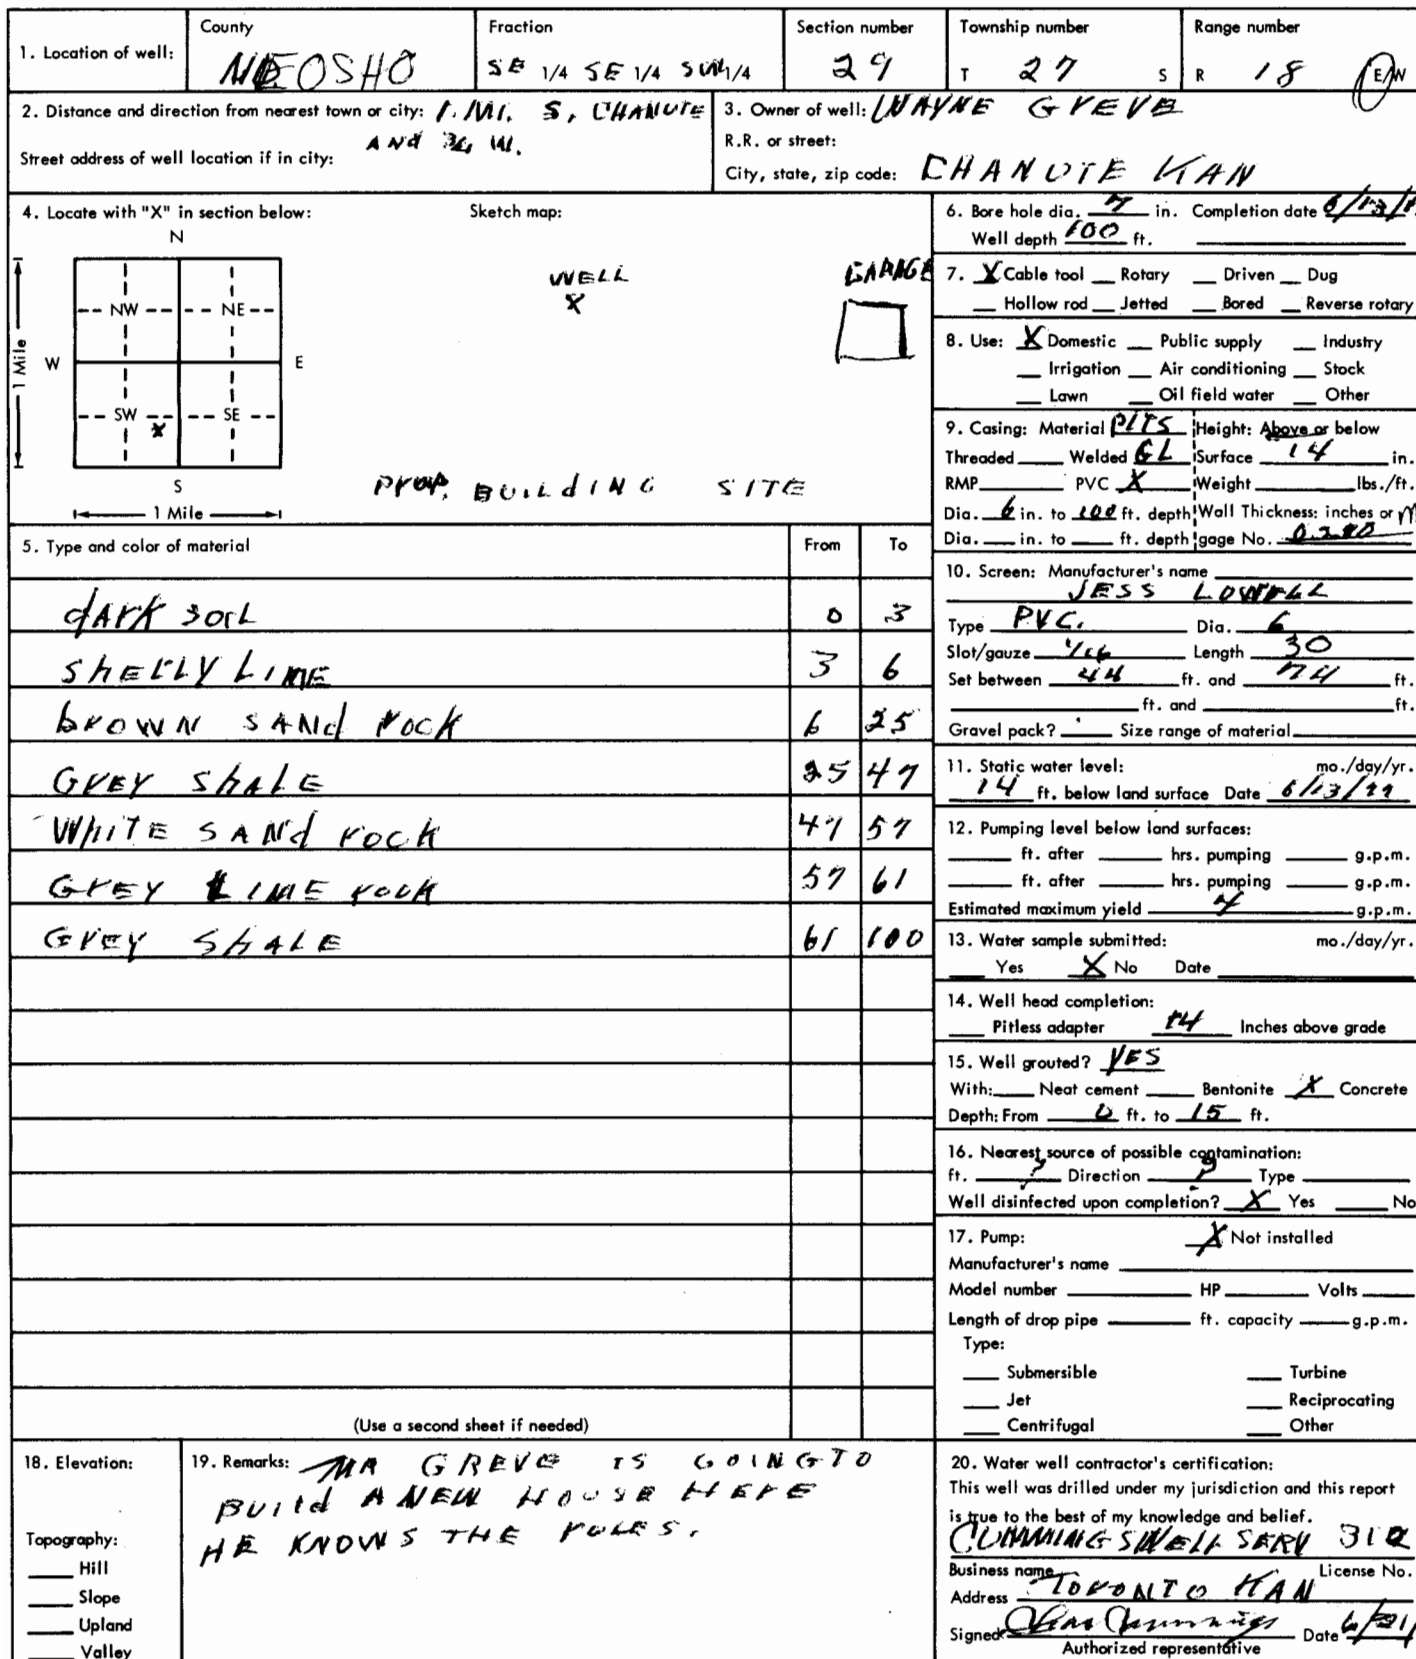 1. Location of well: County NEOSHO Fraction SE 1/4 SE 1/4 SW 1/4 Section number 29 Township number T 27 S Range number R 18 E/W
2. Distance and direction from nearest town or city: 1. MI. S, CHANUTE
ANd 3/4 W.
Street address of well location if in city:
3. Owner of well: WAYNE GREVE
R.R. or street:
City, state, zip code: CHANUTE KAN
4. Locate with "X" in section below:
Sketch map:
N
NW NE
W E
SW X SE
S
1 Mile
1 Mile
WELL
X
GARAGE
Prop. BUILdING SITE
5. Type and color of material From To
dArk SOIL 0 3
ShELLY LIME 3 6
brOWN SANd rOCK 6 25
GrEY ShALE 25 47
WhITE SANd rOCK 47 57
GrEY LIME rOCK 57 61
GrEY ShALE 61 100
(Use a second sheet if needed)
6. Bore hole dia. 7 in. Completion date 6/13/
Well depth 100 ft.
7. X Cable tool Rotary Driven Dug
Hollow rod Jetted Bored Reverse rotary
8. Use: X Domestic Public supply Industry
Irrigation Air conditioning Stock
Lawn Oil field water Other
9. Casing: Material Height: Above or below
Threaded Welded GL Surface 14 in.
RMP PVC X Weight lbs./ft.
Dia. 6 in. to 100 ft. depth Wall Thickness: inches or
Dia. in. to ft. depth gage No. 0.280
10. Screen: Manufacturer's name
JESS LOWELL
Type PVC. Dia. 6
Slot/gauze 1/16 Length 30
Set between 44 ft. and 74 ft.
ft. and ft.
Gravel pack? Size range of material
11. Static water level: mo./day/yr.
14 ft. below land surface Date 6/13/77
12. Pumping level below land surfaces:
ft. after hrs. pumping g.p.m.
ft. after hrs. pumping g.p.m.
Estimated maximum yield g.p.m.
13. Water sample submitted: mo./day/yr.
Yes X No Date
14. Well head completion:
Pitless adapter 14 Inches above grade
15. Well grouted? YES
With: Neat cement Bentonite X Concrete
Depth: From 0 ft. to 15 ft.
16. Nearest source of possible contamination:
ft. ? Direction ? Type
Well disinfected upon completion? X Yes No
17. Pump: X Not installed
Manufacturer's name
Model number HP Volts
Length of drop pipe ft. capacity g.p.m.
Type:
Submersible Turbine
Jet Reciprocating
Centrifugal Other
18. Elevation:
Topography:
Hill
Slope
Upland
Valley
19. Remarks: MR GREVE IS GOING TO
BUILd A NEW HOUSE HERE
HE KNOWS THE RULES.
20. Water well contractor's certification:
This well was drilled under my jurisdiction and this report
is true to the best of my knowledge and belief.
CUMMINGS WELL SERV 312
Business name License No.
Address TORONTO KAN
Signed Cummings Date 6/21/
Authorized representative